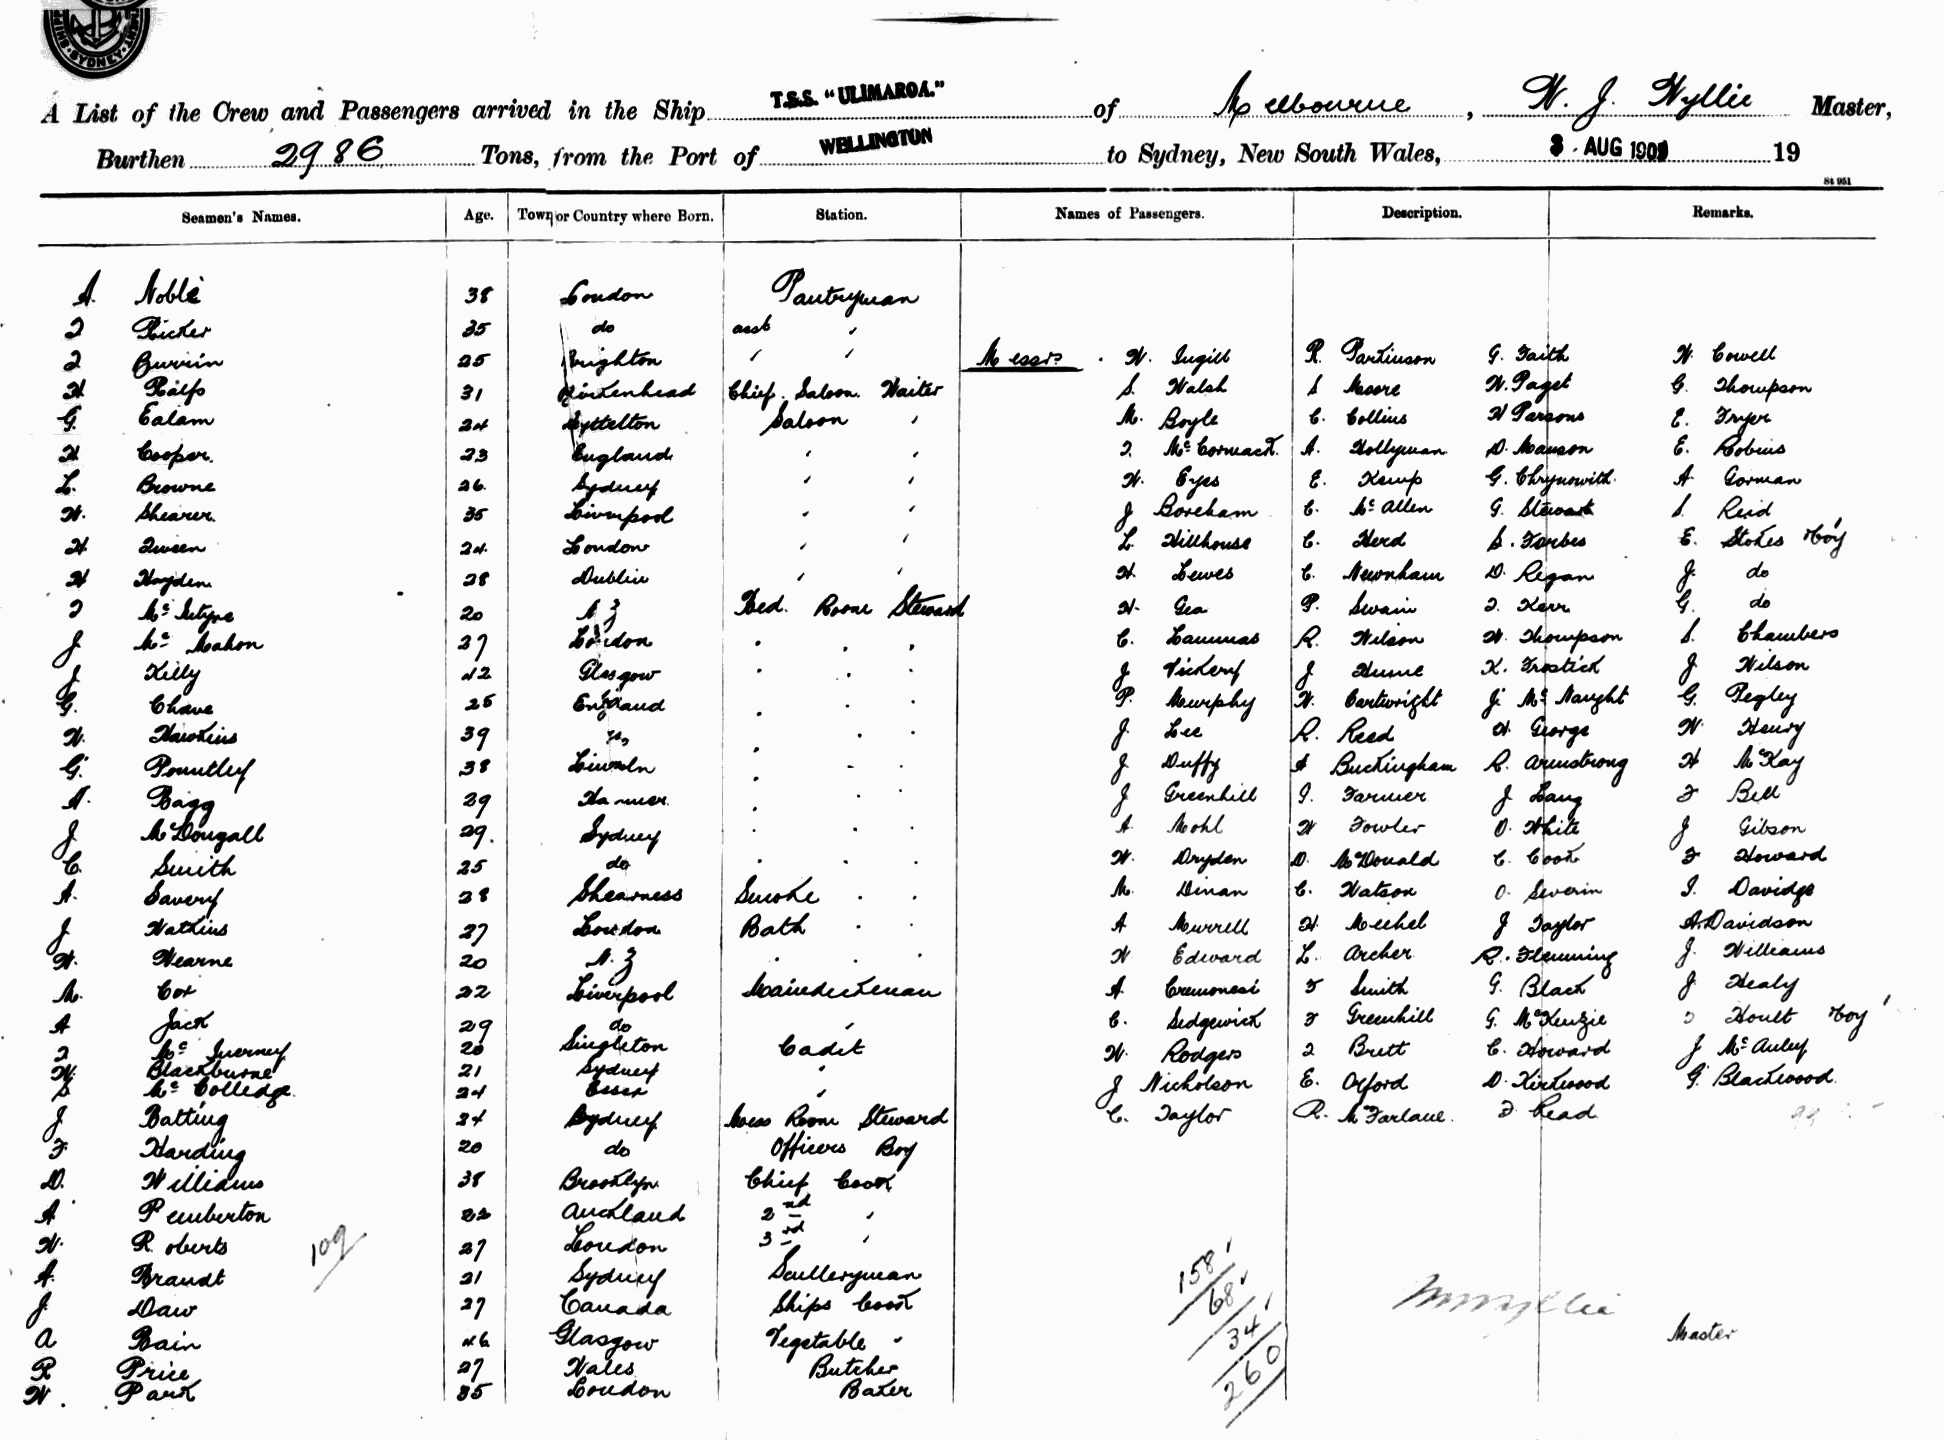 SYDNEY
A List of the Crew and Passengers arrived in the Ship T.S.S. "ULIMAROA." of Melbourne, W. J. Wyllie Master,
Burthen 2986 Tons, from the Port of WELLINGTON to Sydney, New South Wales, 3 AUG 1909 19
St 951
Seamen's Names. Age. Town or Country where Born. Station. Names of Passengers. Description. Remarks.
A. Noble 38 London Pantryman
Ricker 35 do asst "
25 Brighton " " Messrs W. Sugill R. Parkinson G. Faith W. Cowell
H Ralfs 31 Birkenhead Chief Saloon Waiter S. Walsh S Moore W. Paget G. Thompson
G. Ealam 24 Lyttelton Saloon " M. Boyle C. Collins W Parsons E. Fryer
H Cooper 23 England " " McCormack A. Hollyman D. Manson E. Robins
L. Browne 26 Sydney " " W. Eyes E. Kemp G. Chynowith A Gorman
W. Shearer 35 Liverpool " " J Boreham C. McAllen G. Stewart S. Reid
H Queen 24 London " " L Hillhouse C. Herd S. Forbes E. Stokes Boy
H Hayden 28 Dublin " " H. Lewes C. Newnham D. Regan J. do
McIntyre 20 N Z Bed Room Steward W. Gea P. Swain Kerr G. do
J McMahon 27 London " " " C. Lammas R. Wilson W. Thompson S. Chambers
J Kelly 42 Glasgow " " " J Vickery J Hume K. Frostick J Wilson
G. Chave 25 England " " " P. Murphy W. Cartwright J. McNaught G. Pegley
W. Hawkins 39 " " " J. Lee R. Reed W. George W. Henry
G. Pountley 38 Lincoln " " " J Duffy Buckingham R. Armstrong H McKay
A. Bagg 29 " " " J Greenhill Farmer J Lang F Bell
J McDougall 29. Sydney " " " A. Mohl W Fowler O. White J Gibson
C. Smith 25 do " " " W. Dryden D. McDonald C. Cook F Howard
A. Savery 28 Shearness Smoke " " M. Dinan C. Watson O Severin Davidge
J Watkins 27 London Bath " " A Murrell H. Mechel J Taylor A. Davidson
W. Hearne 20 N. Z " " " W Edward L. Archer R. Flemming J. Williams
M. Cox 22 Liverpool Maindeckman A Cremonesi F Smith G. Black J Healy
A Jack 29 do " C. Sedgewick F Greenhill G. McKenzie Hoult Boy
McInerney 20 Singleton Cadet W. Rodgers Brett C. Howard J McAuley
W. Blackburne 21 Sydney " J Nicholson E. Oxford D. Kirkwood G. Blackwood
S McColledge 24 Essex " C. Taylor R. McFarlane F Read
J Batting 24 Sydney Mess Room Steward
F. Harding 20 do Officers Boy
D. Williams 38 Brooklyn Chief Cook
A Pemberton 22 Auckland 2nd "
W. Roberts 27 London 3rd "
109
A. Brandt 21 Sydney Sculleryman
J. Daw 27 Canada Ships Cook
A Bain 46 Glasgow Vegetable "
R Price 27 Wales Butcher
W. Park 35 London Baker
158
68
34
260
W J Wyllie
Master